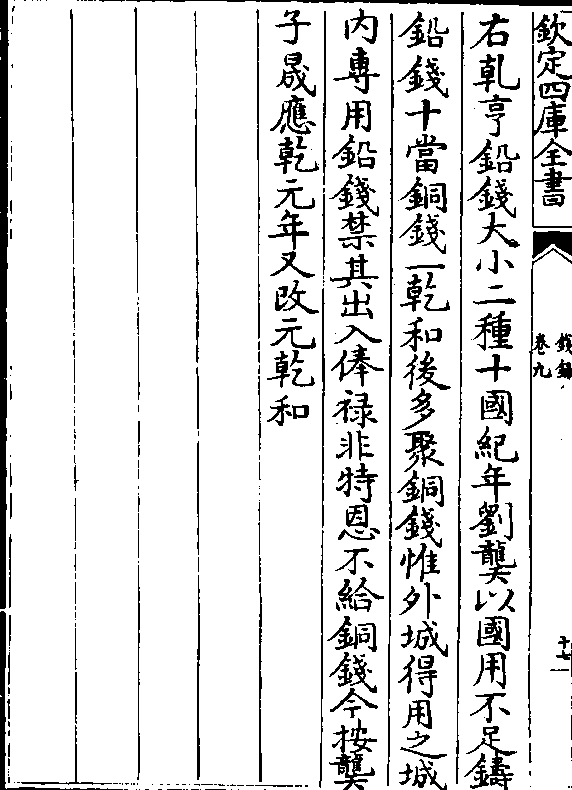 欽定四庫全書
錢録
卷九
十七
右乹亨鉛錢大小二種十國紀年劉龑以國用不足鑄
鉛錢十當銅錢一乾和後多聚銅錢惟外城得用之城
内專用鉛錢禁其出入俸禄非特恩不給銅錢今按龑
子晟應乾元年又改元乾和